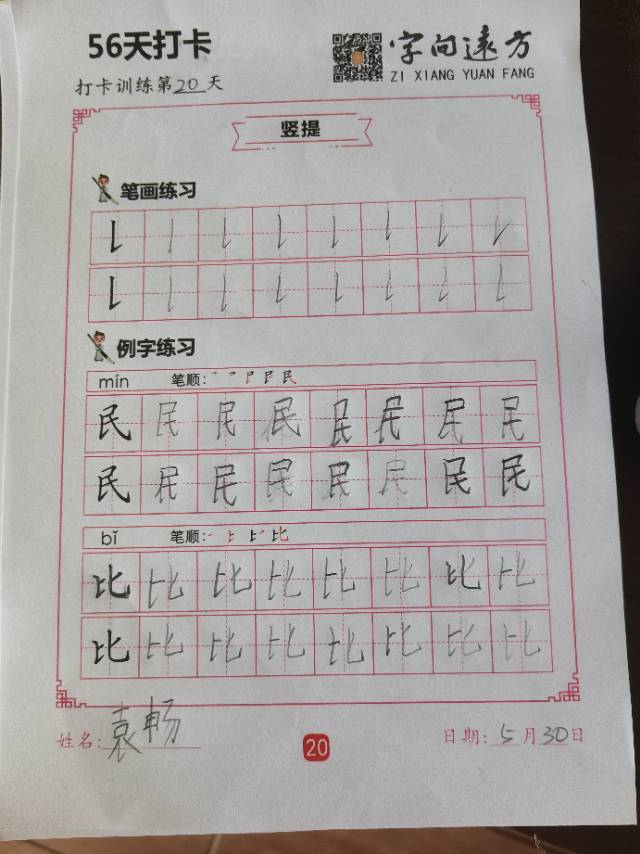 56天打卡
字向远方
ZI XIANG YUAN FANG
打卡训练第20天
竖提
笔画练习
例字练习
mín 笔顺:
民 民 民 民 民 民 民 民
民 民 民 民 民 民 民 民
bǐ 笔顺:
比 比 比 比 比 比 比 比
比 比 比 比 比 比 比 比
姓名:袁畅 20 日期:5月30日